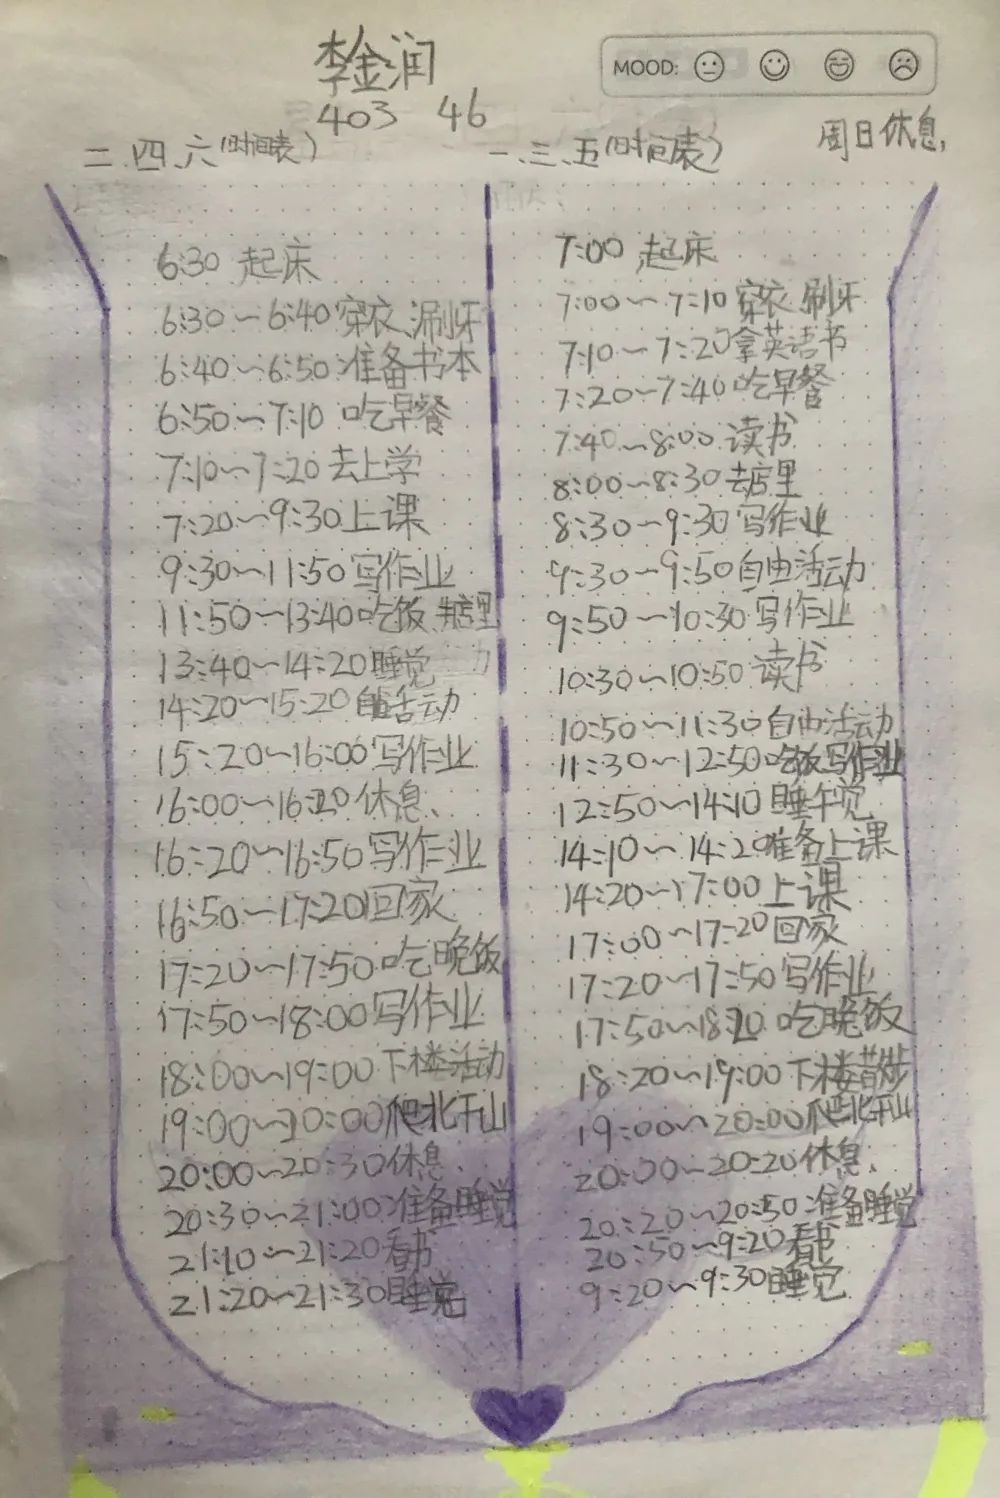 李金润
MOOD:
403 46
周日休息,
二.四.六(时间表)
6:30 起床
6:30～6:40穿衣、涮牙
6:40～6:50准备书本
6:50～7:10 吃早餐
7:10～7:20去上学
7:20～9:30上课
9:30～11:50写作业
11:50～13:40吃饭 去店里
13:40～14:20睡觉
14:20～15:20自由活动
15:20～16:00写作业
16:00～16:20休息、
16:20～16:50写作业
16:50～17:20回家
17:20～17:50吃晚饭
17:50～18:00写作业
18:00～19:00下楼活动
19:00～20:00爬北干山
20:00～20:30休息、
20:30～21:00准备睡觉
21:10～21:20看书
21:20～21:30睡觉
一.三.五(时间表)
7:00 起床
7:00～7:10穿衣、刷牙
7:10～7:20拿英语书
7:20～7:40吃早餐
7:40～8:00读书
8:00～8:30去店里
8:30～9:30写作业
9:30～9:50自由活动
9:50～10:30写作业
10:30～10:50读书
10:50～11:30自由活动
11:30～12:50吃饭写作业
12:50～14:10睡午觉
14:10～14:20准备上课
14:20～17:00上课
17:00～17:20回家
17:20～17:50写作业
17:50～18:20吃晚饭
18:20～19:00下楼散步
19:00～20:00爬北干山
20:00～20:20休息、
20:20～20:50准备睡觉
20:50～9:20看书
9:20～9:30睡觉